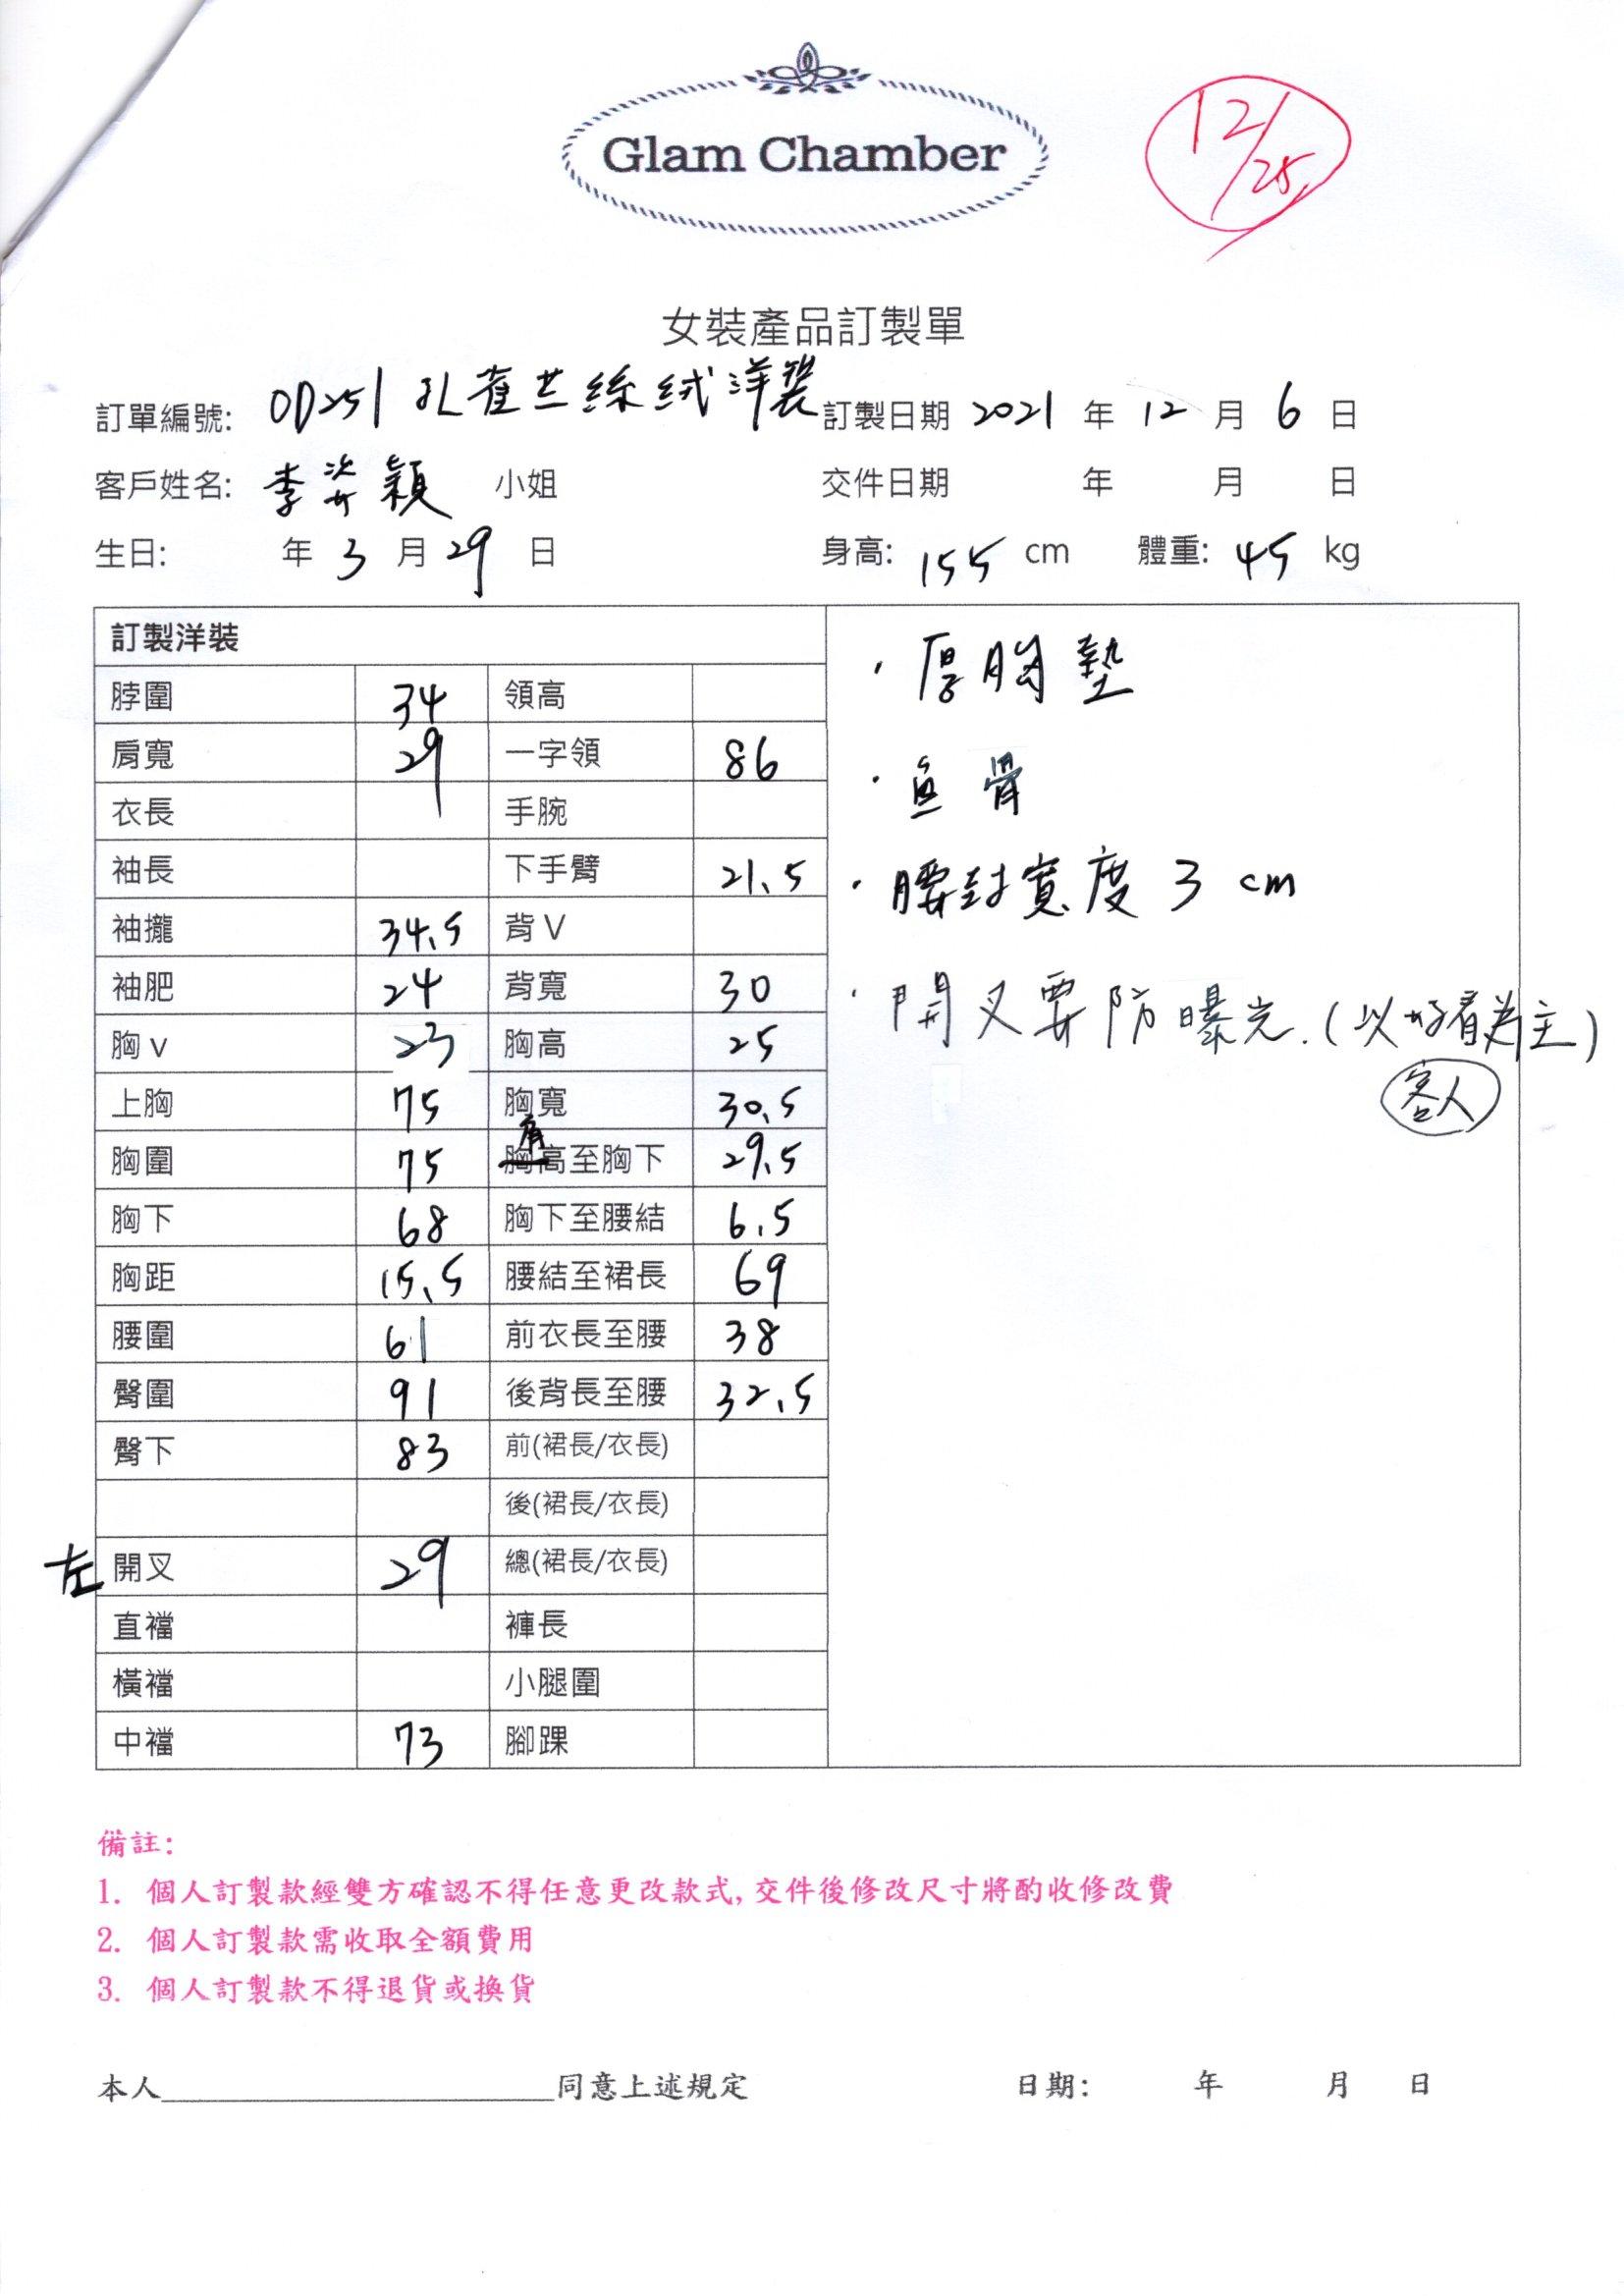 Glam Chamber
12/25
女裝產品訂製單
訂單編號: OD251 孔雀兰絲絨洋裝 訂製日期 2021 年 12 月 6 日
客戶姓名: 李姿穎 小姐 交件日期 年 月 日
生日: 年 3 月 29 日 身高: 155 cm 體重: 45 kg
訂製洋裝
脖圍 34 領高
肩寬 29 一字領 86
衣長 手腕
袖長 下手臂 21.5
袖攏 34.5 背V
袖肥 24 背寬 30
胸v 23 胸高 25
上胸 75 胸寬 30.5
胸圍 75 肩高至胸下 29.5
胸下 68 胸下至腰結 6.5
胸距 15.5 腰結至裙長 69
腰圍 61 前衣長至腰 38
臀圍 91 後背長至腰 32.5
臀下 83 前(裙長/衣長)
後(裙長/衣長)
左 開叉 29 總(裙長/衣長)
直襠 褲長
橫襠 小腿圍
中襠 73 腳踝
· 厚胸墊
· 魚骨
· 腰封寬度 3 cm
· 開叉要防曝光.(以好看為主)
客人
備註:
1. 個人訂製款經雙方確認不得任意更改款式, 交件後修改尺寸將酌收修改費
2. 個人訂製款需收取全額費用
3. 個人訂製款不得退貨或換貨
本人____________________同意上述規定 日期: 年 月 日